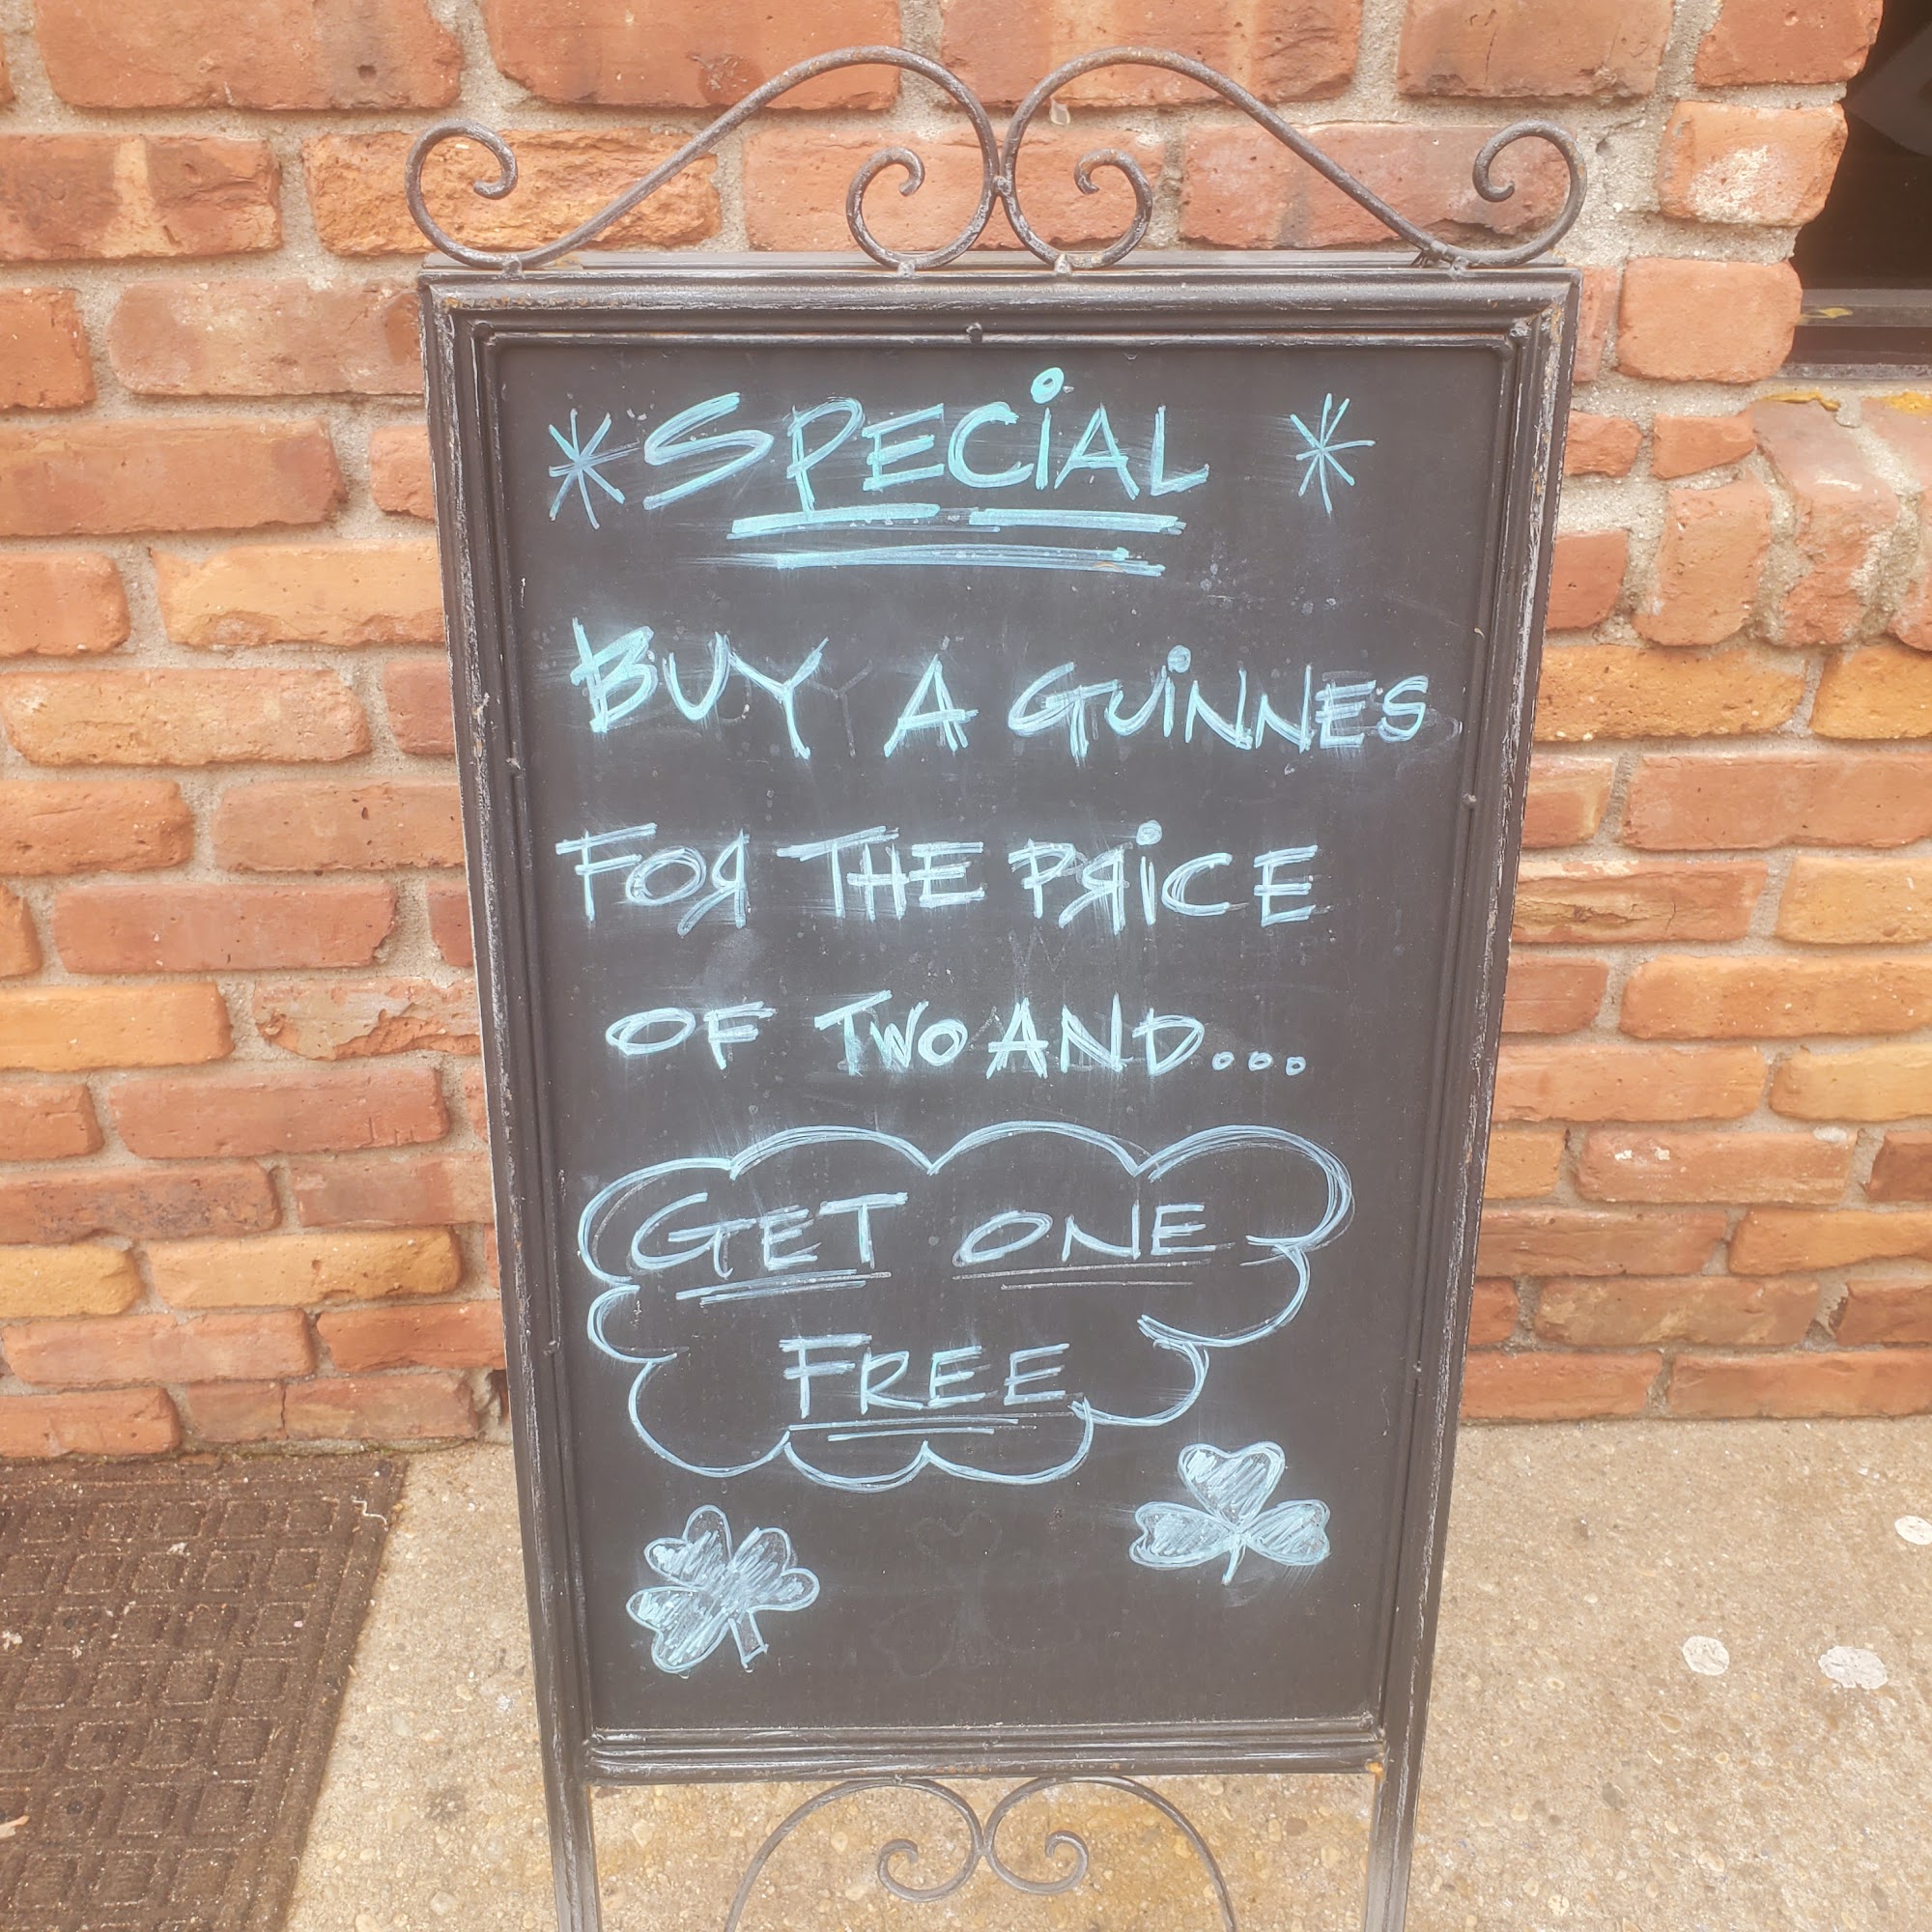 *SPECiAL *
BUY A GUiNNES
FOR THE PRiCE
OF TWO AND...
GET ONE
FREE